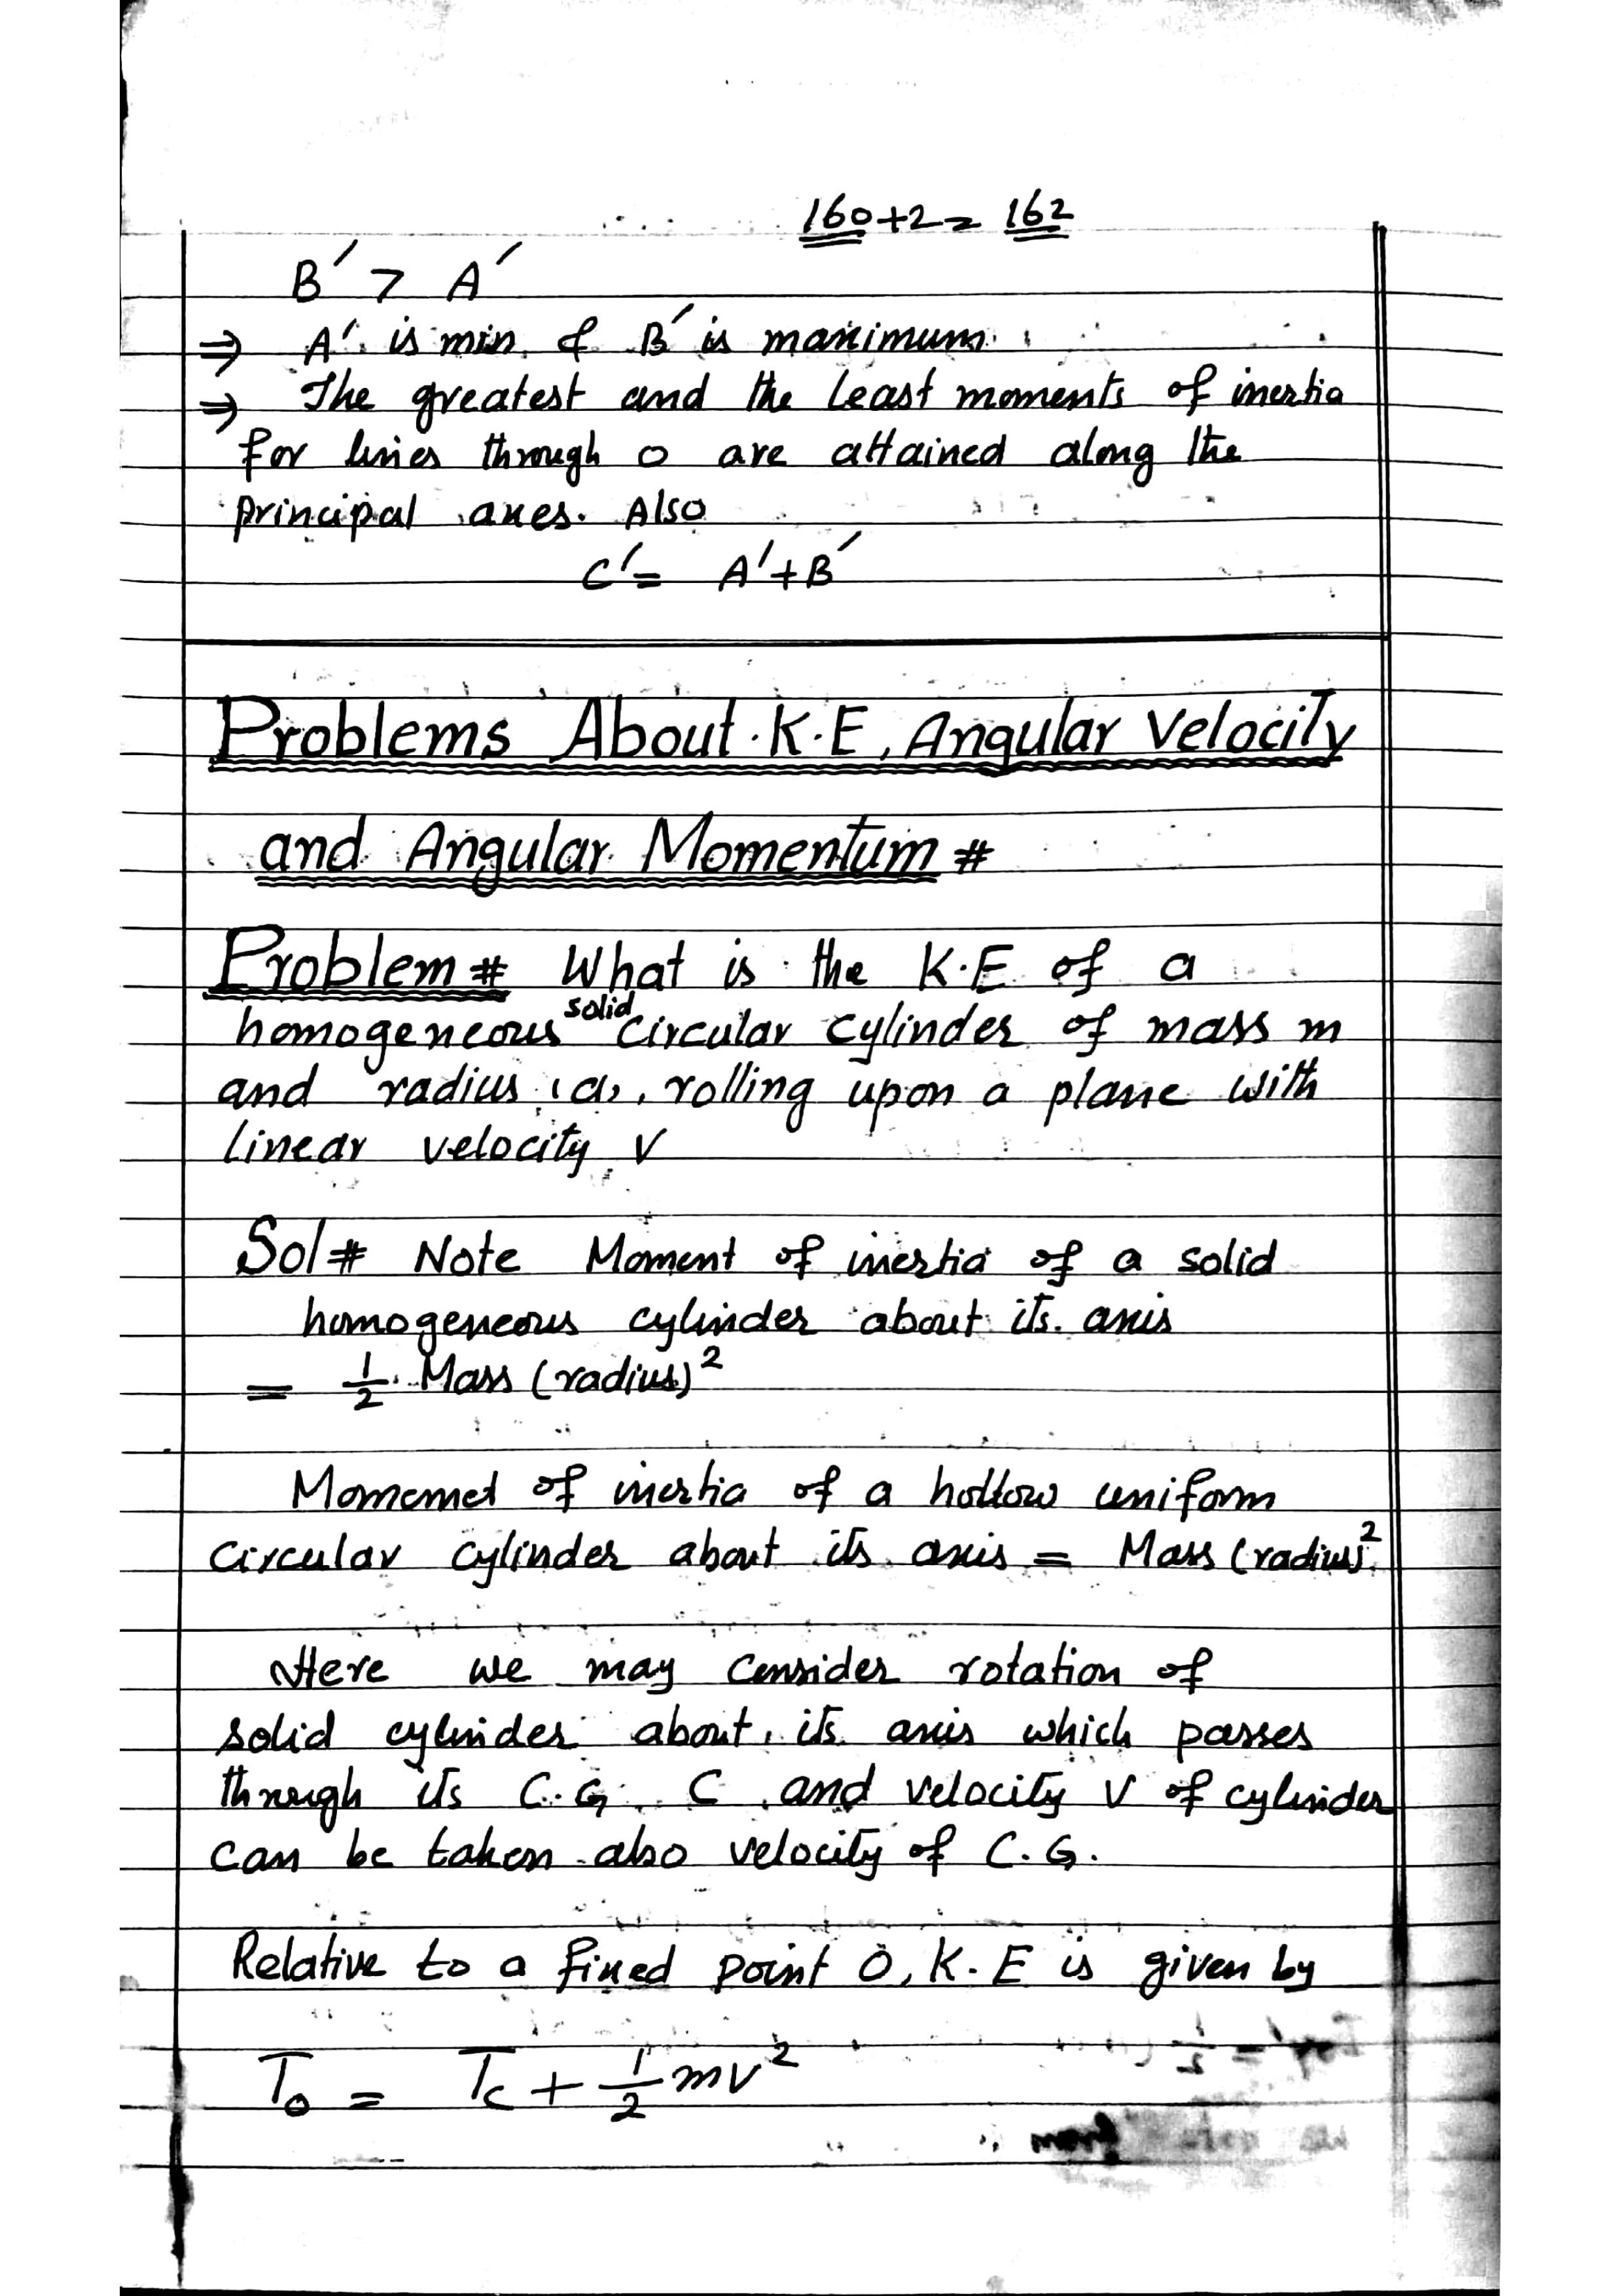 160+2= 162
B′ > A′
⇒ A′ is min. & B′ is maximum
⇒ The greatest and the least moments of inertia
for lines through o are attained along the
principal axes. Also
C′= A′+B′
Problems About K.E, Angular Velocity
and Angular Momentum #
Problem # What is the K.E of a
homogeneous solid circular cylinder of mass m
and radius (a), rolling upon a plane with
linear velocity V
Sol # Note Moment of inertia of a solid
homogeneous cylinder about its axis
= 1/2 Mass (radius)²
Momemet of inertia of a hollow uniform
circular cylinder about its axis = Mass (radius)²
Here we may consider rotation of
solid cylinder about its axis which passes
through its C.G. C and velocity V of cylinder
can be taken also velocity of C.G.
Relative to a fixed point O, K.E is given by
T₀ = Tc + 1/2 mv²